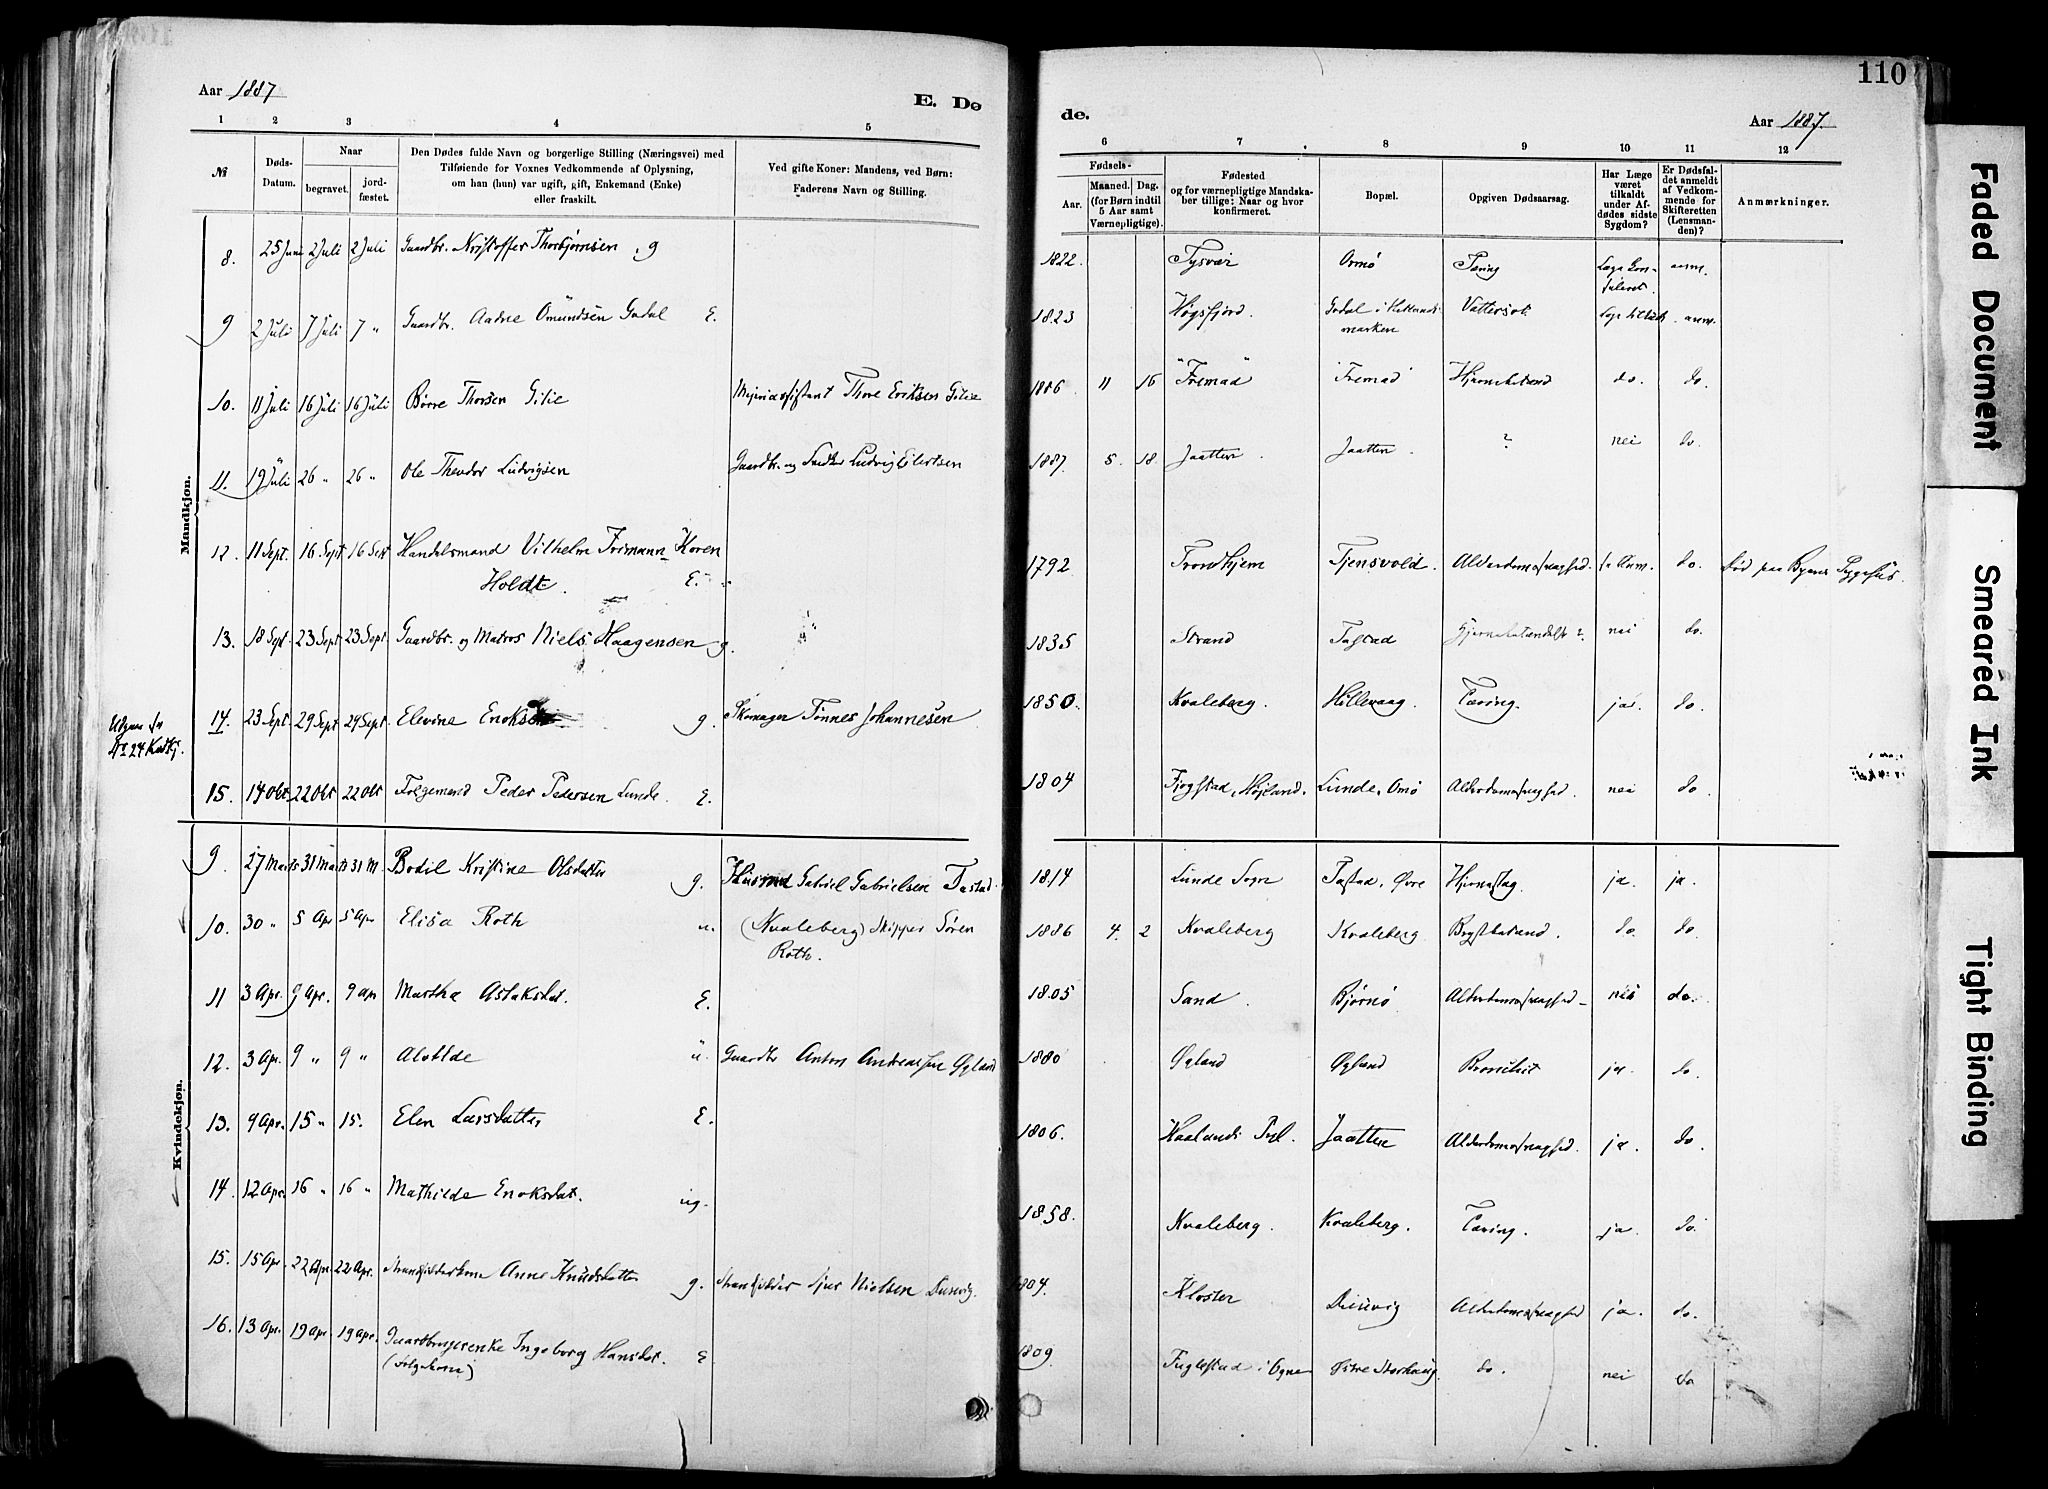 Aar 1887
E. Dø
1 2 3 4 5
№
Døds-
Datum.
Naar
begravet.
jord-
fæstet.
Den Dødes fulde Navn og borgerlige Stilling (Næringsvei) med
Tilføiende for Voxnes Vedkommende af Oplysning,
om han (hun) var ugift, gift, Enkemand (Enke)
eller fraskilt.
Ved gifte Koner: Mandens, ved Børn:
Faderens Navn og Stilling.
Mandkjøn.
8. 25 Juni 2 Juli 2 Juli Gaardbr. Kristoffer Thorbjørnsen g
9 2 Juli 7 Juli 7 " Gaardbr. Aadne Omündsen Godal E.
10. 11 Juli 16 Juli 16 Juli Børre Thorsen Gilie Thore Eriksen Gilie
11. 19 Juli 26 " 26 " Ole Theodor Ludvigsen Gaardbr. og Ludvig Eilertsen
12. 11 Sept. 16 Sept 16 Sept Handelsmand Vilhelm Frimann Koren
Holdt. E.
13. 18 Sept 23 Sept 23 Sept. Gaardbr. og Matros Niels Haagensen g.
14. 23 Sept 29 Sept 29 Sept Elevine g. Skomager Tønnes Johannesen
Udgaar
No 24
15. 14 Okt 22 Okt 22 Okt Folgemand Peder Pedersen Lunde. E.
Kvindekjøn.
9. 27 Marts 31 Marts 31 M. Bodil Kristine Olsdatter g. Husmd Gabriel Gabrielsen Tastad.
10. 30 " 5 Apr 5 Apr Elisa Roth u. (Kvaleberg) Skipper Søren
Roth.
11 3 Apr. 9 Apr. 9 apr Martha Aslaksdat. E.
12. 3 Apr. 9 " 9 " Alvilde ü. Gaardbr Anton Andreassen Øgland
13. 9 Apr. 15 " 15. Elen Larsdatter E.
14. 12 Apr. 16 " 16 " Mathilde Enoksdat. ug.
15. 15 Apr. 22 Apr 22 Apr. Strandsidderkone Anne Knudsdatter g. Strandsidder Sjur Nielsen Dusevig.
16. 13 Apr. 19 Apr. 19 Apr. Gaardbrugerenke Ingeborg Hansdat. E
(Folgekone)
de.
Aar 1887.
110
6 7 8 9 10 11 12
Fødsels-
Aar.
Maaned. Dag.
(for Børn indtil
5 Aar samt
Værnepligtige).
Fødested
og for værnepligtige Mandska-
ber tillige: Naar og hvor
konfirmeret.
Bopæl.
Opgiven Dødsaarsag.
Har Læge
været
tilkaldt
under Af-
dødes sidste
Sygdom?
Er Dødsfal-
det anmeldt
af Vedkom-
mende for
Skifteretten
(Lensman-
den)?
Anmærkninger.
1822. Tysvær Ormø Tæring Læge kon-
suleret. anm.
1823 Høgsfjord. Godal i Hetlands
marken Vattersot Læge tilkaldt. anm.
1886 11 16 "Fremad" "Fremad" Hjernebetænd do. do.
1887. 5. 18. Jaatten. Jaatten. ? nei do.
1792. Trondhjem Tjensvold. Alderdomssvaghed. do. Død paa Byens Sygehus.
1835 Strand Tastad Hjernebetændelse? nei do.
1850. Kvaleberg. Hillevaag. Tæring. ja. do.
1804 Fjogstad, Højland. Lunde, Omø Alderdomssvaghed. nei do.
1814 Lunde Sogn Tastad, Øvre Hjerneslag. ja. ja.
1886 4. 2 Kvaleberg Kvaleberg Brystbetænd. do. do.
1805 Sand. Bjørnø Alderdomssvaghed nei do.
1880 Øgland Øgland Bronchit ja. do.
1806. Haalands Jaatten Alderdomssvaghed. ja. do
1858. Kvaleberg. Kvaleberg. Tæring. ja do.
1804. Kloster Dusevig Alderdomssvaghed ja. do.
1809 Fuglestad i Ogne Østre Storhaug do. nei do
Faded Document
Smeared Ink
Tight Binding